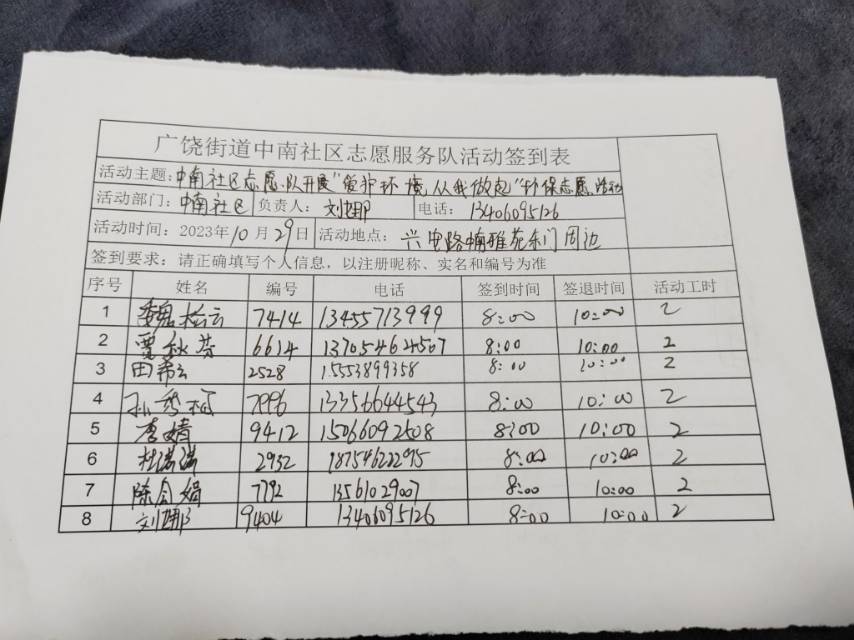 广饶街道中南社区志愿服务队活动签到表
活动主题:中南社区志愿队开展"爱护环境,从我做起"环保志愿活动
活动部门:中南社区 负责人:刘娜 电话:13406095126
活动时间:2023年10月29日 活动地点:兴安路楠雅苑东门周边
签到要求:请正确填写个人信息,以注册昵称、实名和编号为准
序号 姓名 编号 电话 签到时间 签退时间 活动工时
1 魏 7414 13455713999 8:00 10:00 2
2 贾秋芬 6614 13705464507 8:00 10:00 2
3 田希云 2528 15553899358 8:00 10:00 2
4 孙秀 7996 13356644543 8:00 10:00 2
5 李婧 9412 15066092508 8:00 10:00 2
6 杜 2932 18754622915 8:00 10:00 2
7 陈令娟 7792 13561029007 8:00 10:00 2
8 刘娜 9404 13406095126 8:00 10:00 2